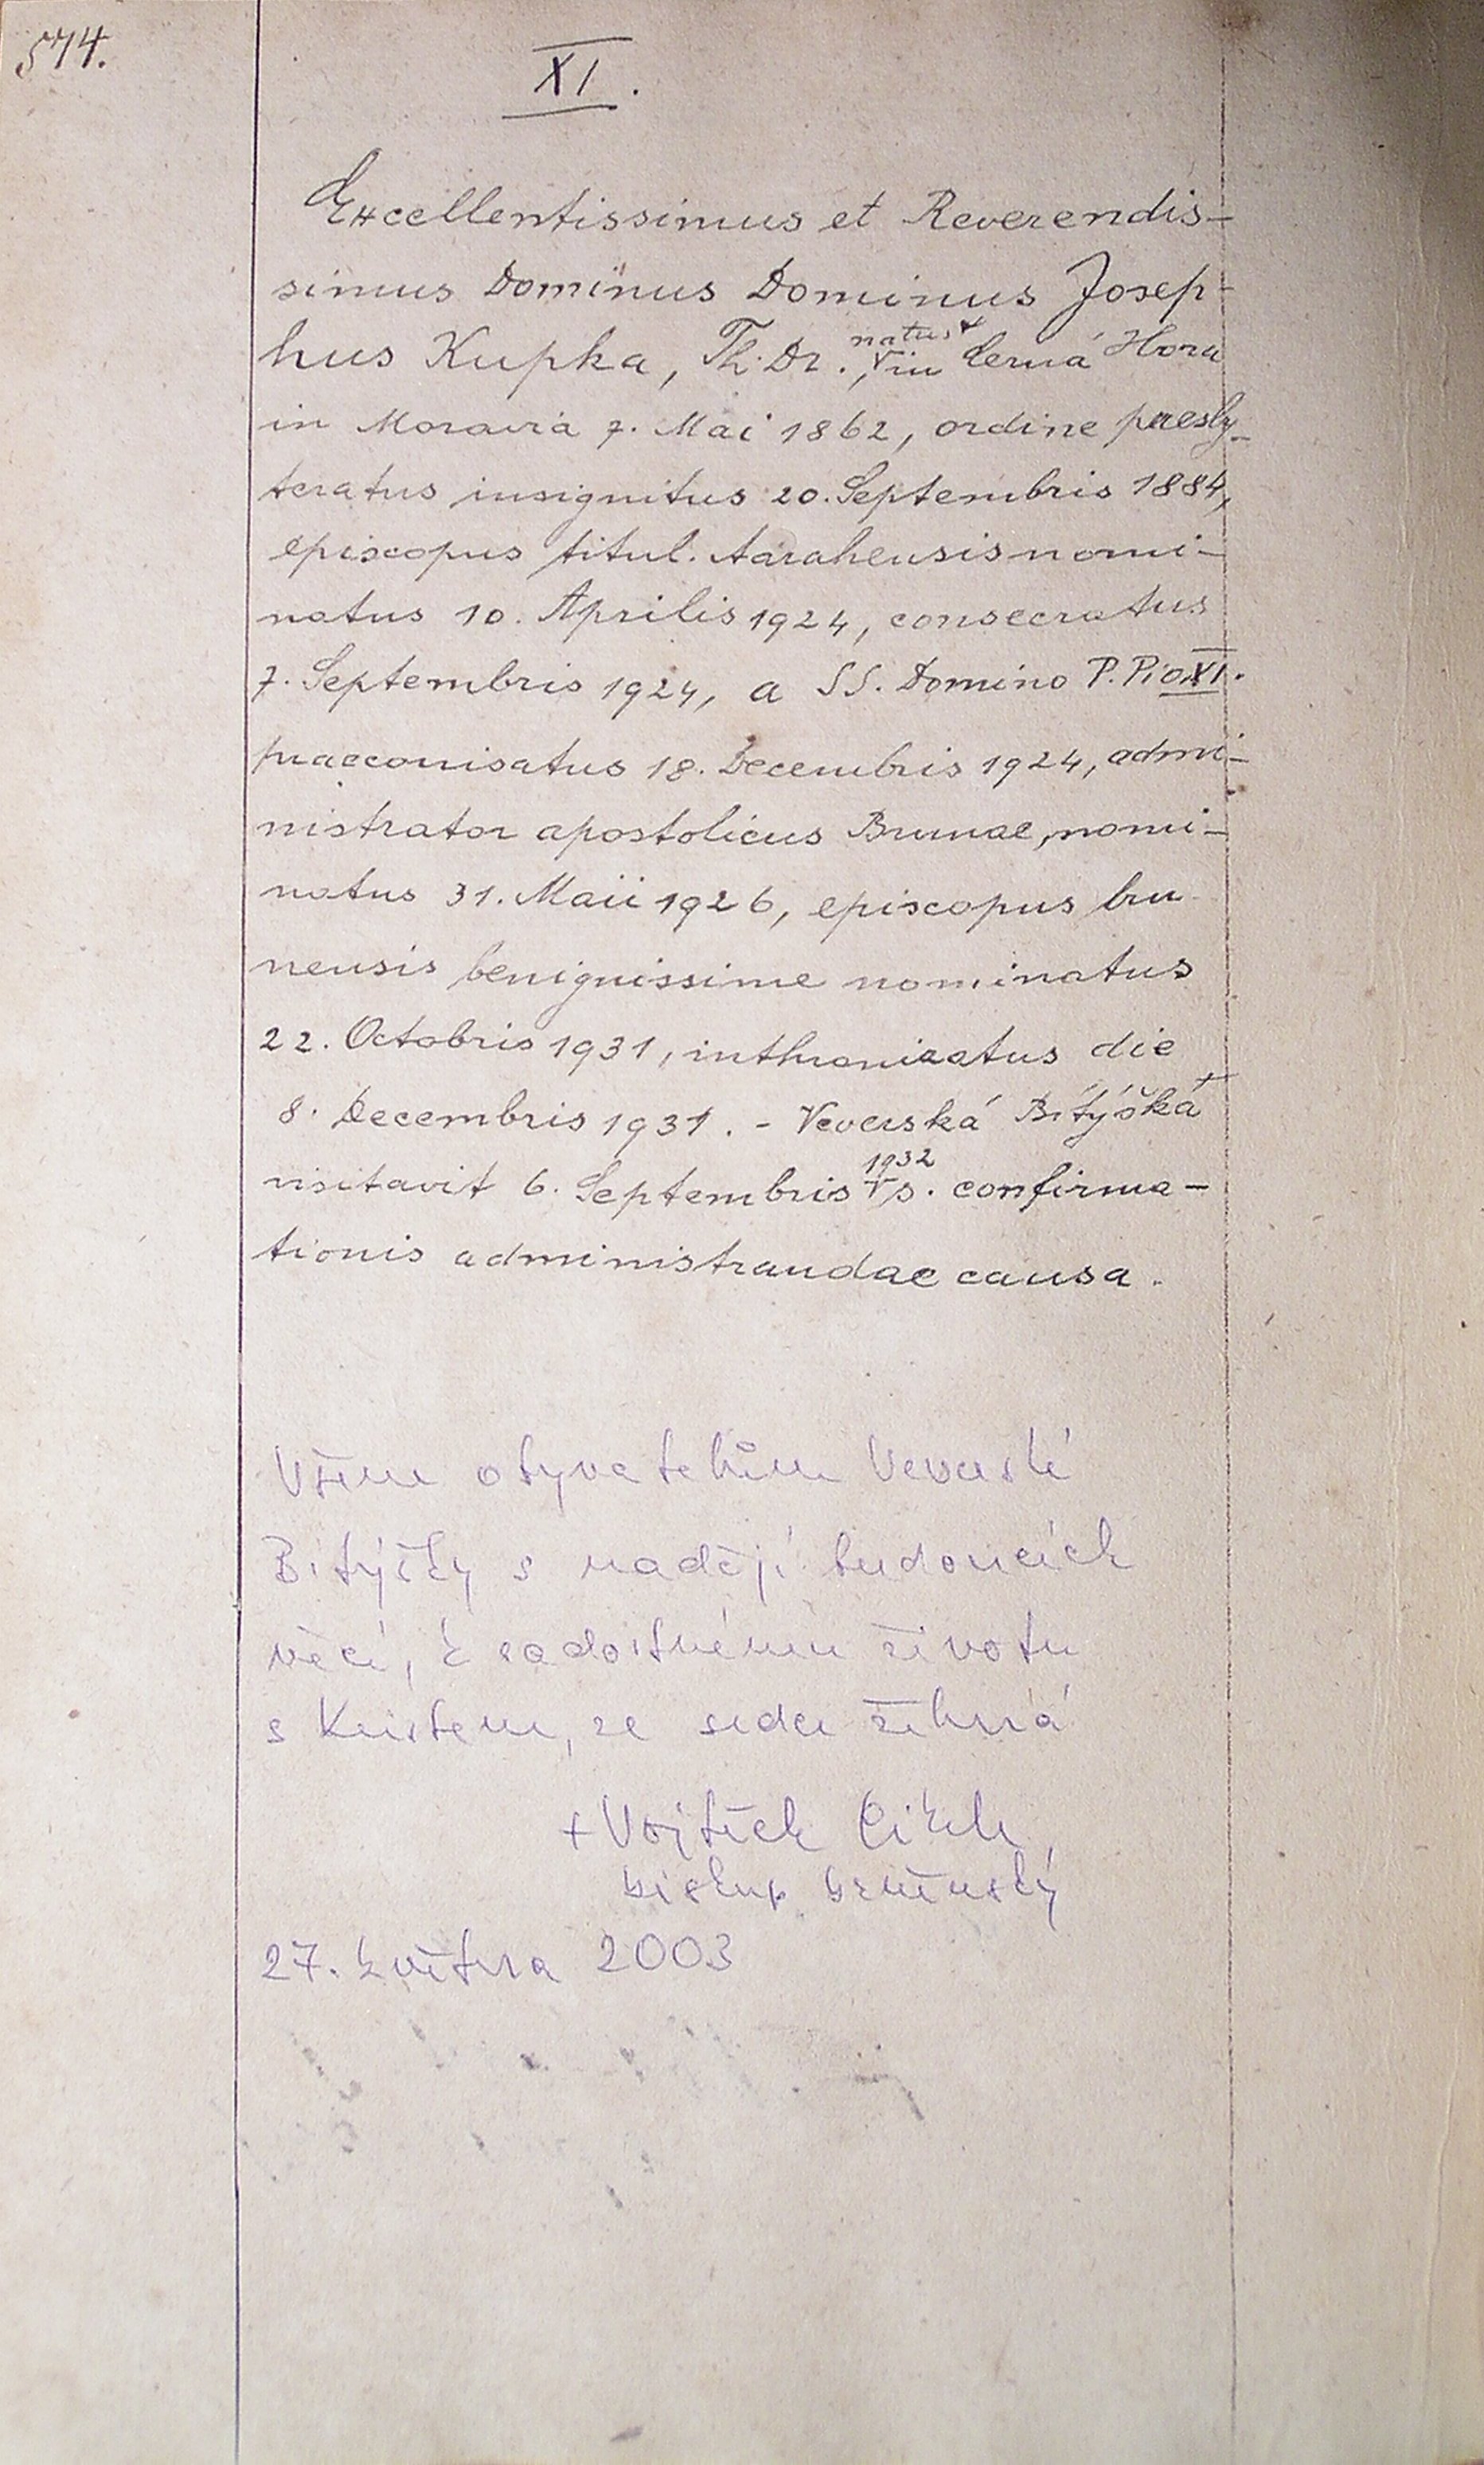 574.
XI.
Excellentissimus et Reverendis-
simus Dominus Dominus Josep-
hus Kupka, Th. Dr., natus in Černá Hora
in Moravia 7. Mai 1862, ordine presby-
teratus insignitus 20. Septembris 1884,
episcopus titul. Tarahensis nomi-
natus 10. Aprilis 1924, consecratus
7. Septembris 1924, a SS. Domino P. Pio XI.
praeconisatus 18. Decembris 1924, admi-
nistrator apostolicus Brunae, nomi-
natus 31. Maii 1926, episcopus bru-
nensis benignissime nominatus
22. Octobris 1931, inthronizatus die
8. Decembris 1931. - Veverská Bítýška
visitavit 6. Septembris 1932 s. confirma-
tionis administrandae causa.
Všem obyvatelům Veverské
Bítýšky s nadějí budoucích
věcí, k radostnému životu
s Kristem, ze srdce žehná
+ Vojtěch Cikrle
biskup brněnský
27. května 2003